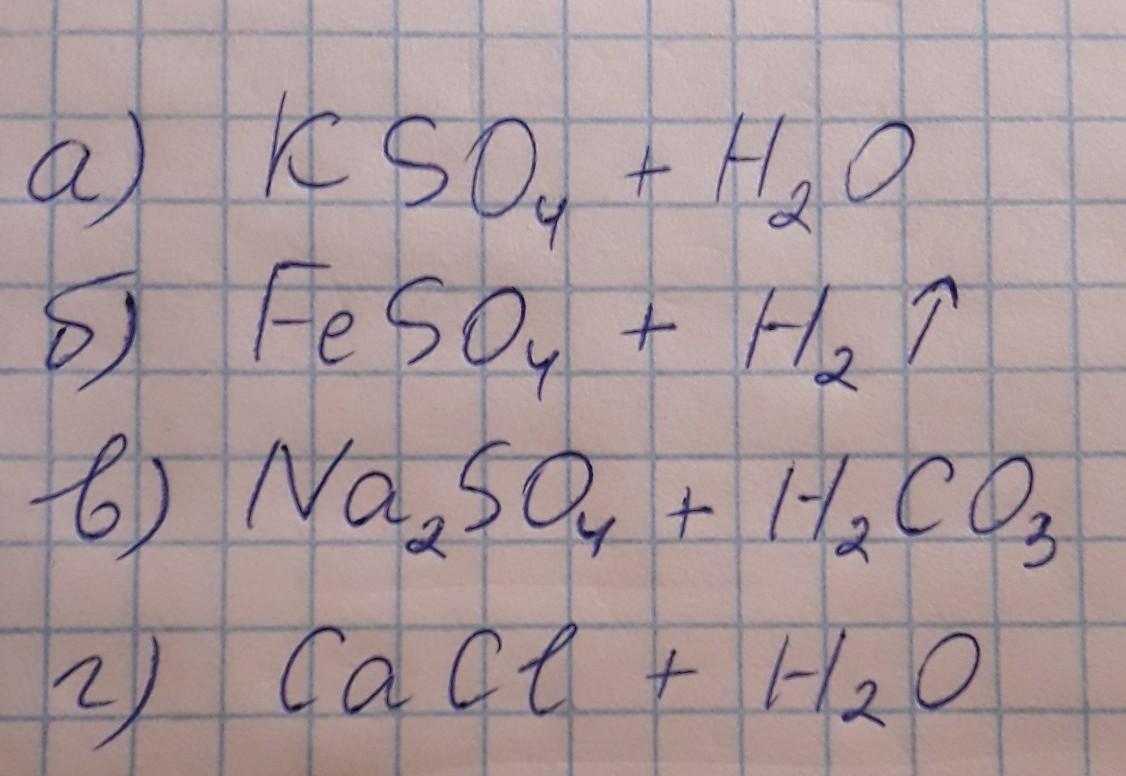 а) KSO₄ + H₂O
б) FeSO₄ + H₂↑
в) Na₂SO₄ + H₂CO₃
г) CaCl + H₂O